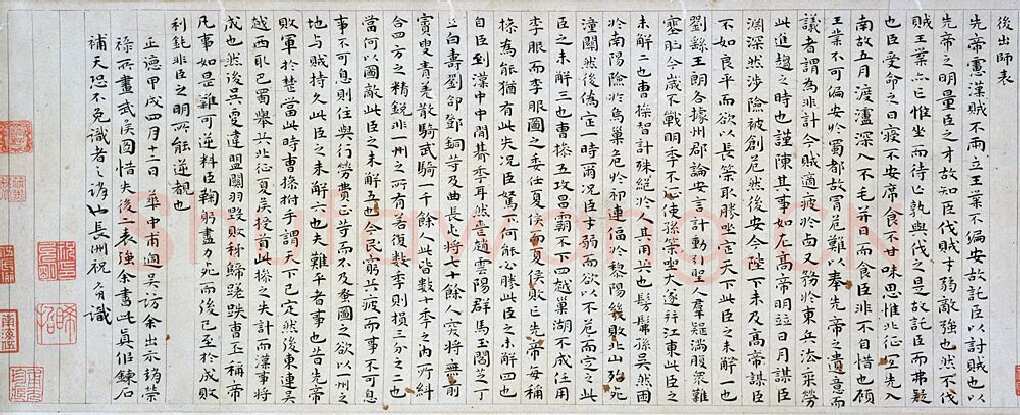 後出師表
先帝慮漢賊不兩立王業不偏安故託臣以討賊也以
先帝之明量臣之才故知臣伐賊才弱敵強也然不伐
賊王業亦亡惟坐而待亡孰與伐之是故託臣而弗疑
也臣受命之日寢不安席食不甘味思惟北征宜先入
南故五月渡瀘深入不毛并日而食臣非不自惜也顧
王業不可偏安於蜀都故冒危難以奉先帝之遺意而
議者謂為非計今賊適疲於西又務於東兵法乘勞
此進趨之時也謹陳其事如左高帝明並日月謀臣
淵深然涉險被創危然後安今陛下未及高帝謀臣
不如良平而欲以長策取勝坐定天下此臣之未解一也
劉繇王朗各據州郡論安言計動引聖人羣疑滿腹衆難
塞胸今歲不戰明年不征使孫策坐大遂并江東此臣之
未解二也曹操智計殊絕於人其用兵也髣髴孫吳然困
於南陽險於烏巢危於祁連偪於黎陽幾敗北山殆死
潼關然後偽定一時爾况臣才弱而欲以不危而定之此
臣之未解三也曹操五攻昌霸不下四越巢湖不成任用
李服而李服圖之委任夏侯而夏侯敗亡先帝每稱
操為能猶有此失况臣駑下何能必勝此臣之未解四也
自臣到漢中中間朞年耳然喪趙雲陽群馬玉閻芝丁
立白壽劉郃鄧銅等及曲長屯將七十餘人突將無前
賨叟青羌散騎武騎一千餘人此皆數十年之內所糾
合四方之精銳非一州之所有若復數年則損三分之二也
當何以圖敵此臣之未解五也今民窮兵疲而事不可息
事不可息則住與行勞費正等而不及蚤圖之欲以一州之
地與賊持久此臣之未解六也夫難平者事也昔先帝
敗軍於楚當此時曹操拊手謂天下已定然後東連吳
越西取巴蜀舉兵北征夏侯授首此操之失計而漢事將
成也然後吳更違盟關羽毀敗秭歸蹉跌曹丕稱帝
凡事如是難可逆料臣鞠躬盡力死而後已至於成敗
利鈍非臣之明所能逆覩也
正德甲戌四月十三日華中甫過吳坊余出示趙榮
祿所畫武侯圖惜失後一表強余書此真假鍊石
補天恐不免識者之誚長洲祝識